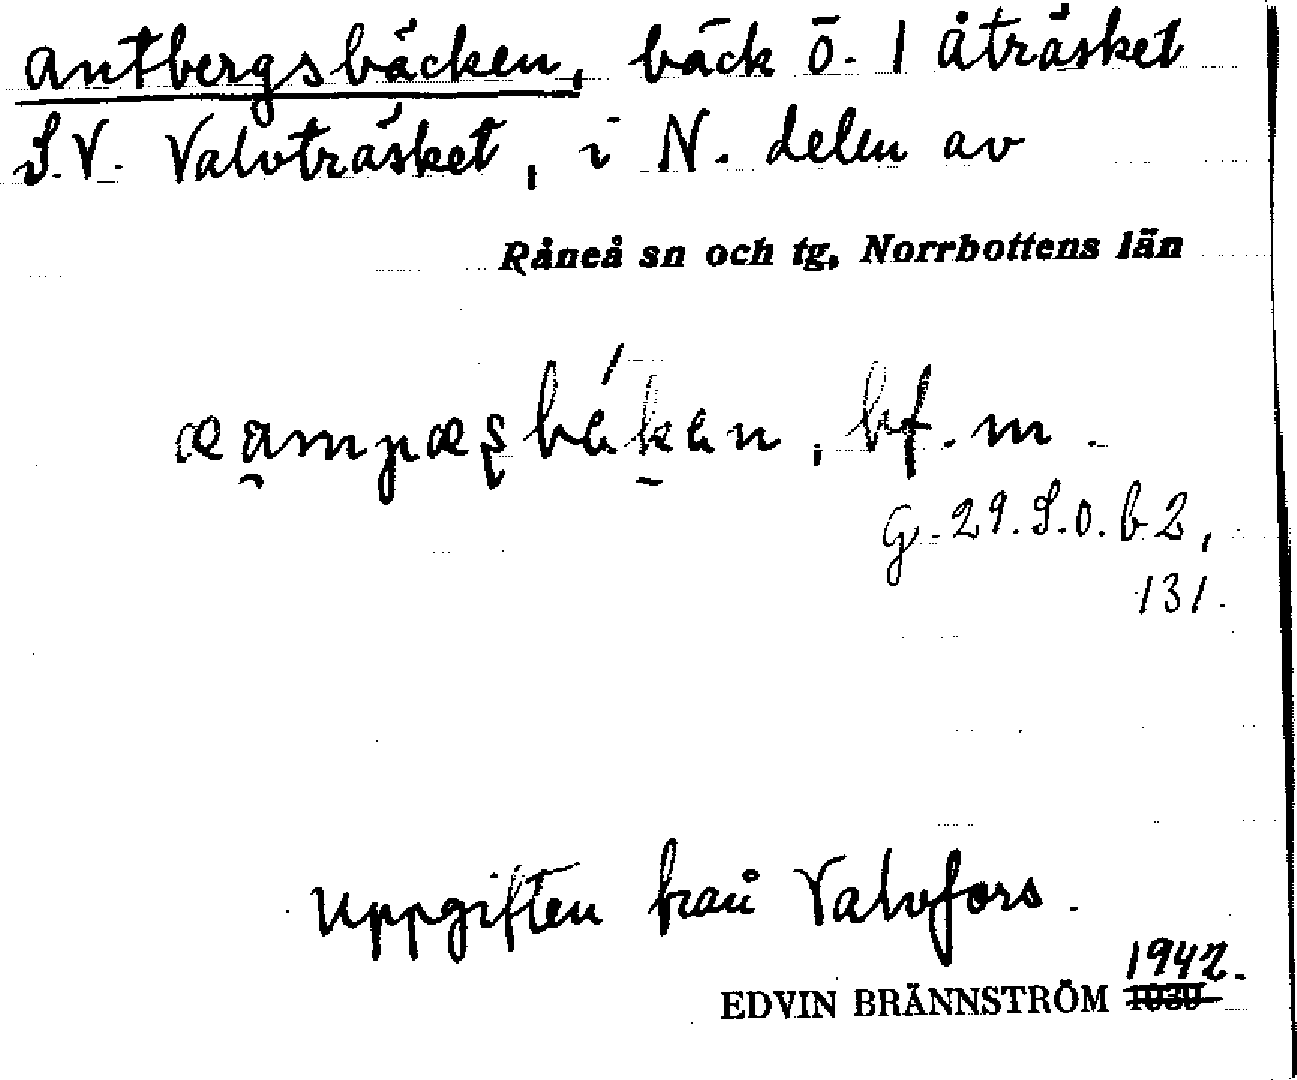 antbergsbäcken, bäck ö. l åträsket
S.V. Valvträsket, i N. delen av
Råneå sn och tg, Norrbottens län
bf. m.
G. 29. S.o. b 2,
131.
Uppgiften från Valvfors.
1942.
EDVIN BRÄNNSTRÖM 1939